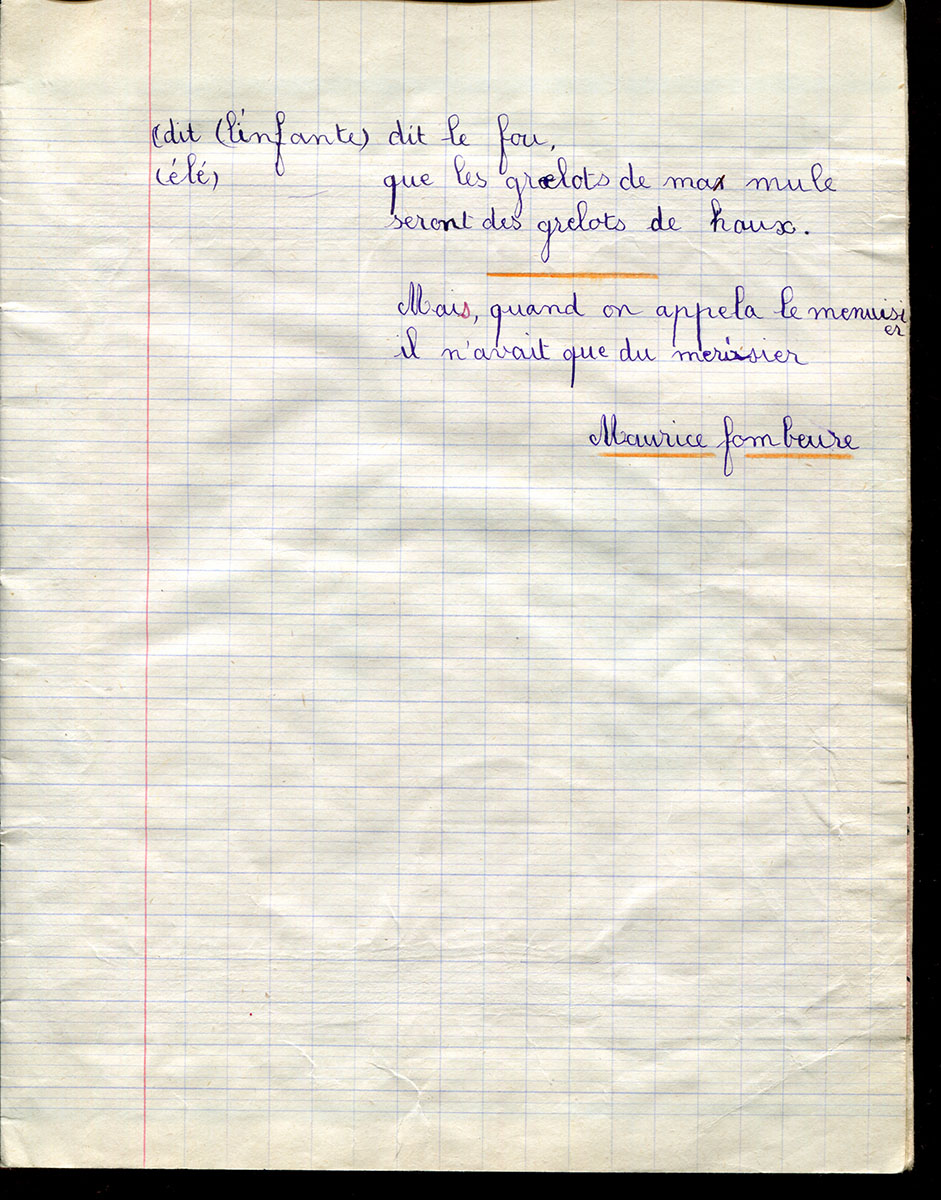 (dit (l'infante) dit le fou,
(élé) que les grelots de ma mule
seront des grelots de houx.
Mais, quand on appela le menuisier
il n'avait que du merisier
Maurice fombeure